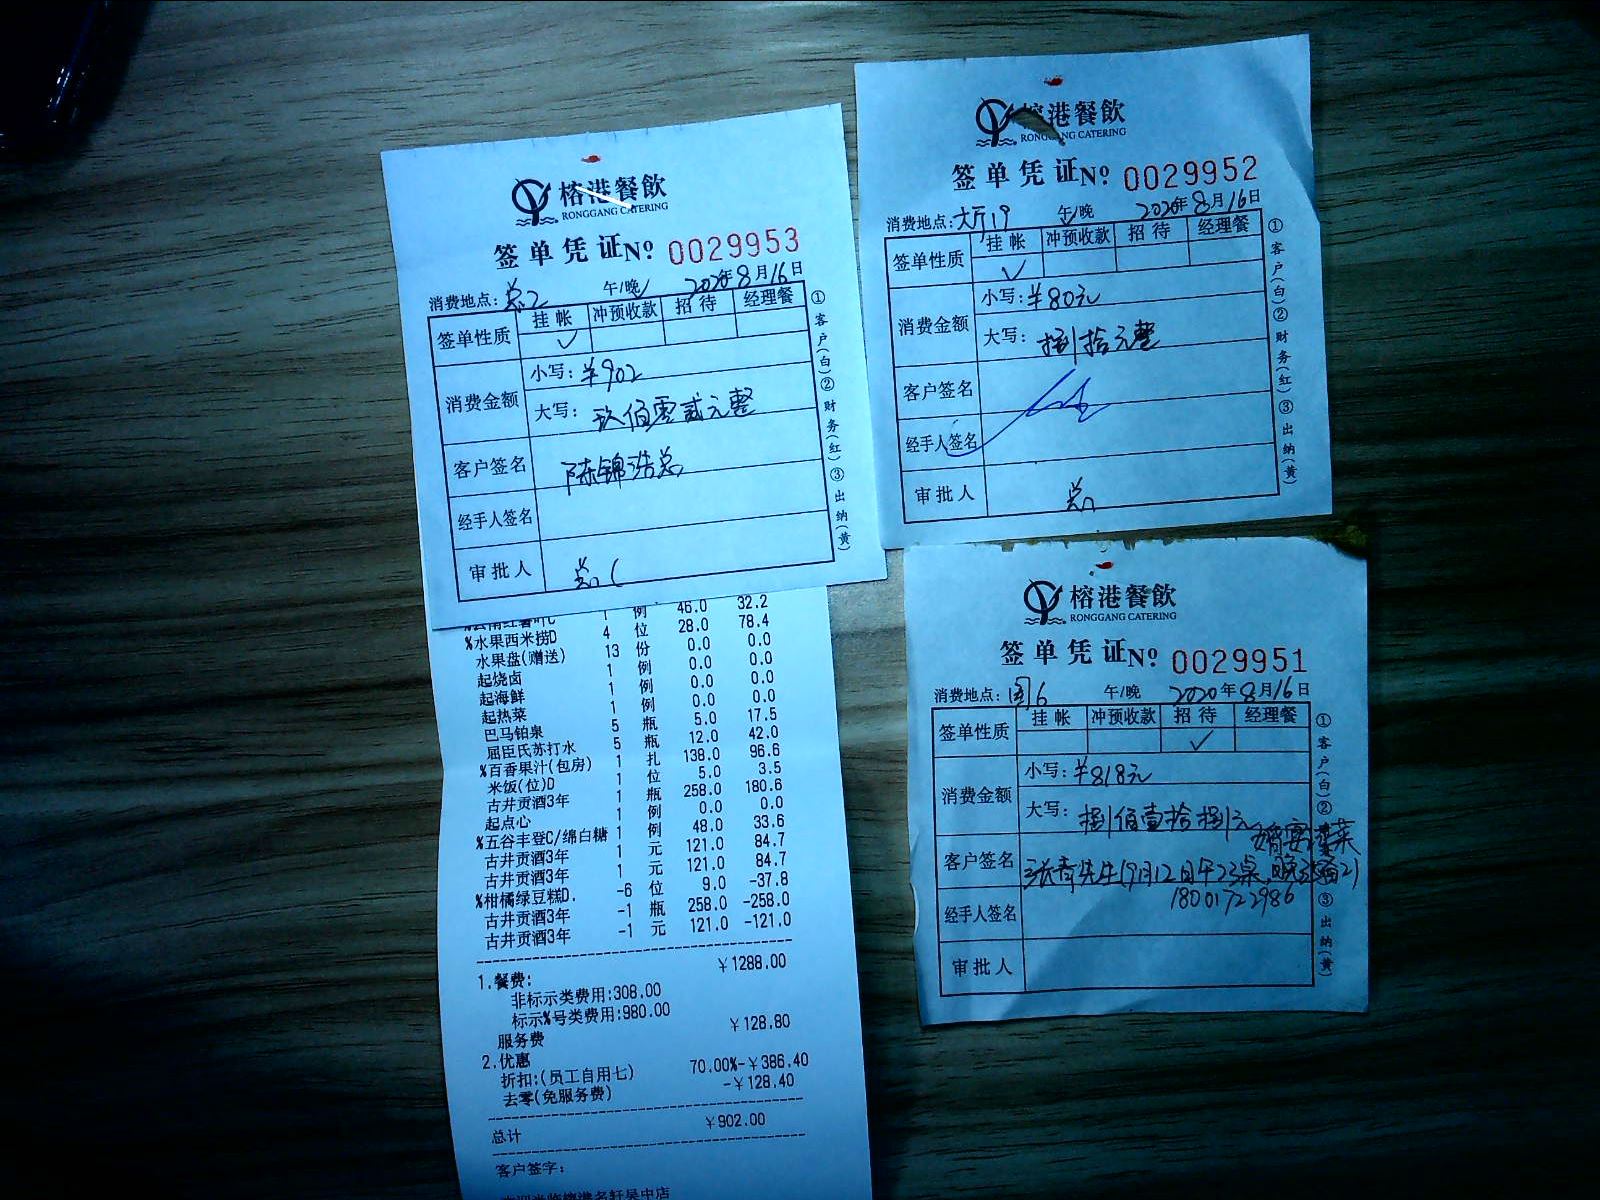 榕港餐飲
RONGGANG CATERING
签单凭证No 0029953
消费地点: 午/晚 2020年8月16日
签单性质 挂帐 冲预收款 招待 经理餐
✓
消费金额 小写: ¥902
大写: 玖佰零贰元整
客户签名 陈锦浩总
经手人签名
审批人
①客户(白)②财务(红)③出纳(黄)
1 例 46.0 32.2
%水果西米捞D 4 位 28.0 78.4
水果盘(赠送) 13 份 0.0 0.0
起烧卤 1 例 0.0 0.0
起海鲜 1 例 0.0 0.0
起热菜 1 例 0.0 0.0
巴马铂泉 5 瓶 5.0 17.5
屈臣氏苏打水 5 瓶 12.0 42.0
%百香果汁(包房) 1 扎 138.0 96.6
米饭(位)D 1 位 5.0 3.5
古井贡酒3年 1 瓶 258.0 180.6
起点心 1 例 0.0 0.0
%五谷丰登C/绵白糖 1 例 48.0 33.6
古井贡酒3年 1 元 121.0 84.7
古井贡酒3年 1 元 121.0 84.7
%柑橘绿豆糕D. -6 位 9.0 -37.8
古井贡酒3年 -1 瓶 258.0 -258.0
古井贡酒3年 -1 元 121.0 -121.0
1.餐费: ¥1288.00
非标示类费用:308.00
标示%号类费用:980.00
服务费 ¥128.80
2.优惠
折扣:(员工自用七) 70.00%-¥386.40
去零(免服务费) -¥128.40
总计 ¥902.00
客户签字:
榕港餐飲
RONGGANG CATERING
签单凭证No 0029952
消费地点: 大厅19 午/晚 2020年8月16日
签单性质 挂帐 冲预收款 招待 经理餐
✓
消费金额 小写: ¥80元
大写: 捌拾元整
客户签名
经手人签名
审批人
①客户(白)②财务(红)③出纳(黄)
榕港餐飲
RONGGANG CATERING
签单凭证No 0029951
消费地点: 午/晚 2020年8月16日
签单性质 挂帐 冲预收款 招待 经理餐
✓
消费金额 小写: ¥818元
大写: 捌佰壹拾捌元
婚宴试菜
客户签名 张青先生(9月12日午23桌
经手人签名 18001722986
审批人
①客户(白)②财务(红)③出纳(黄)